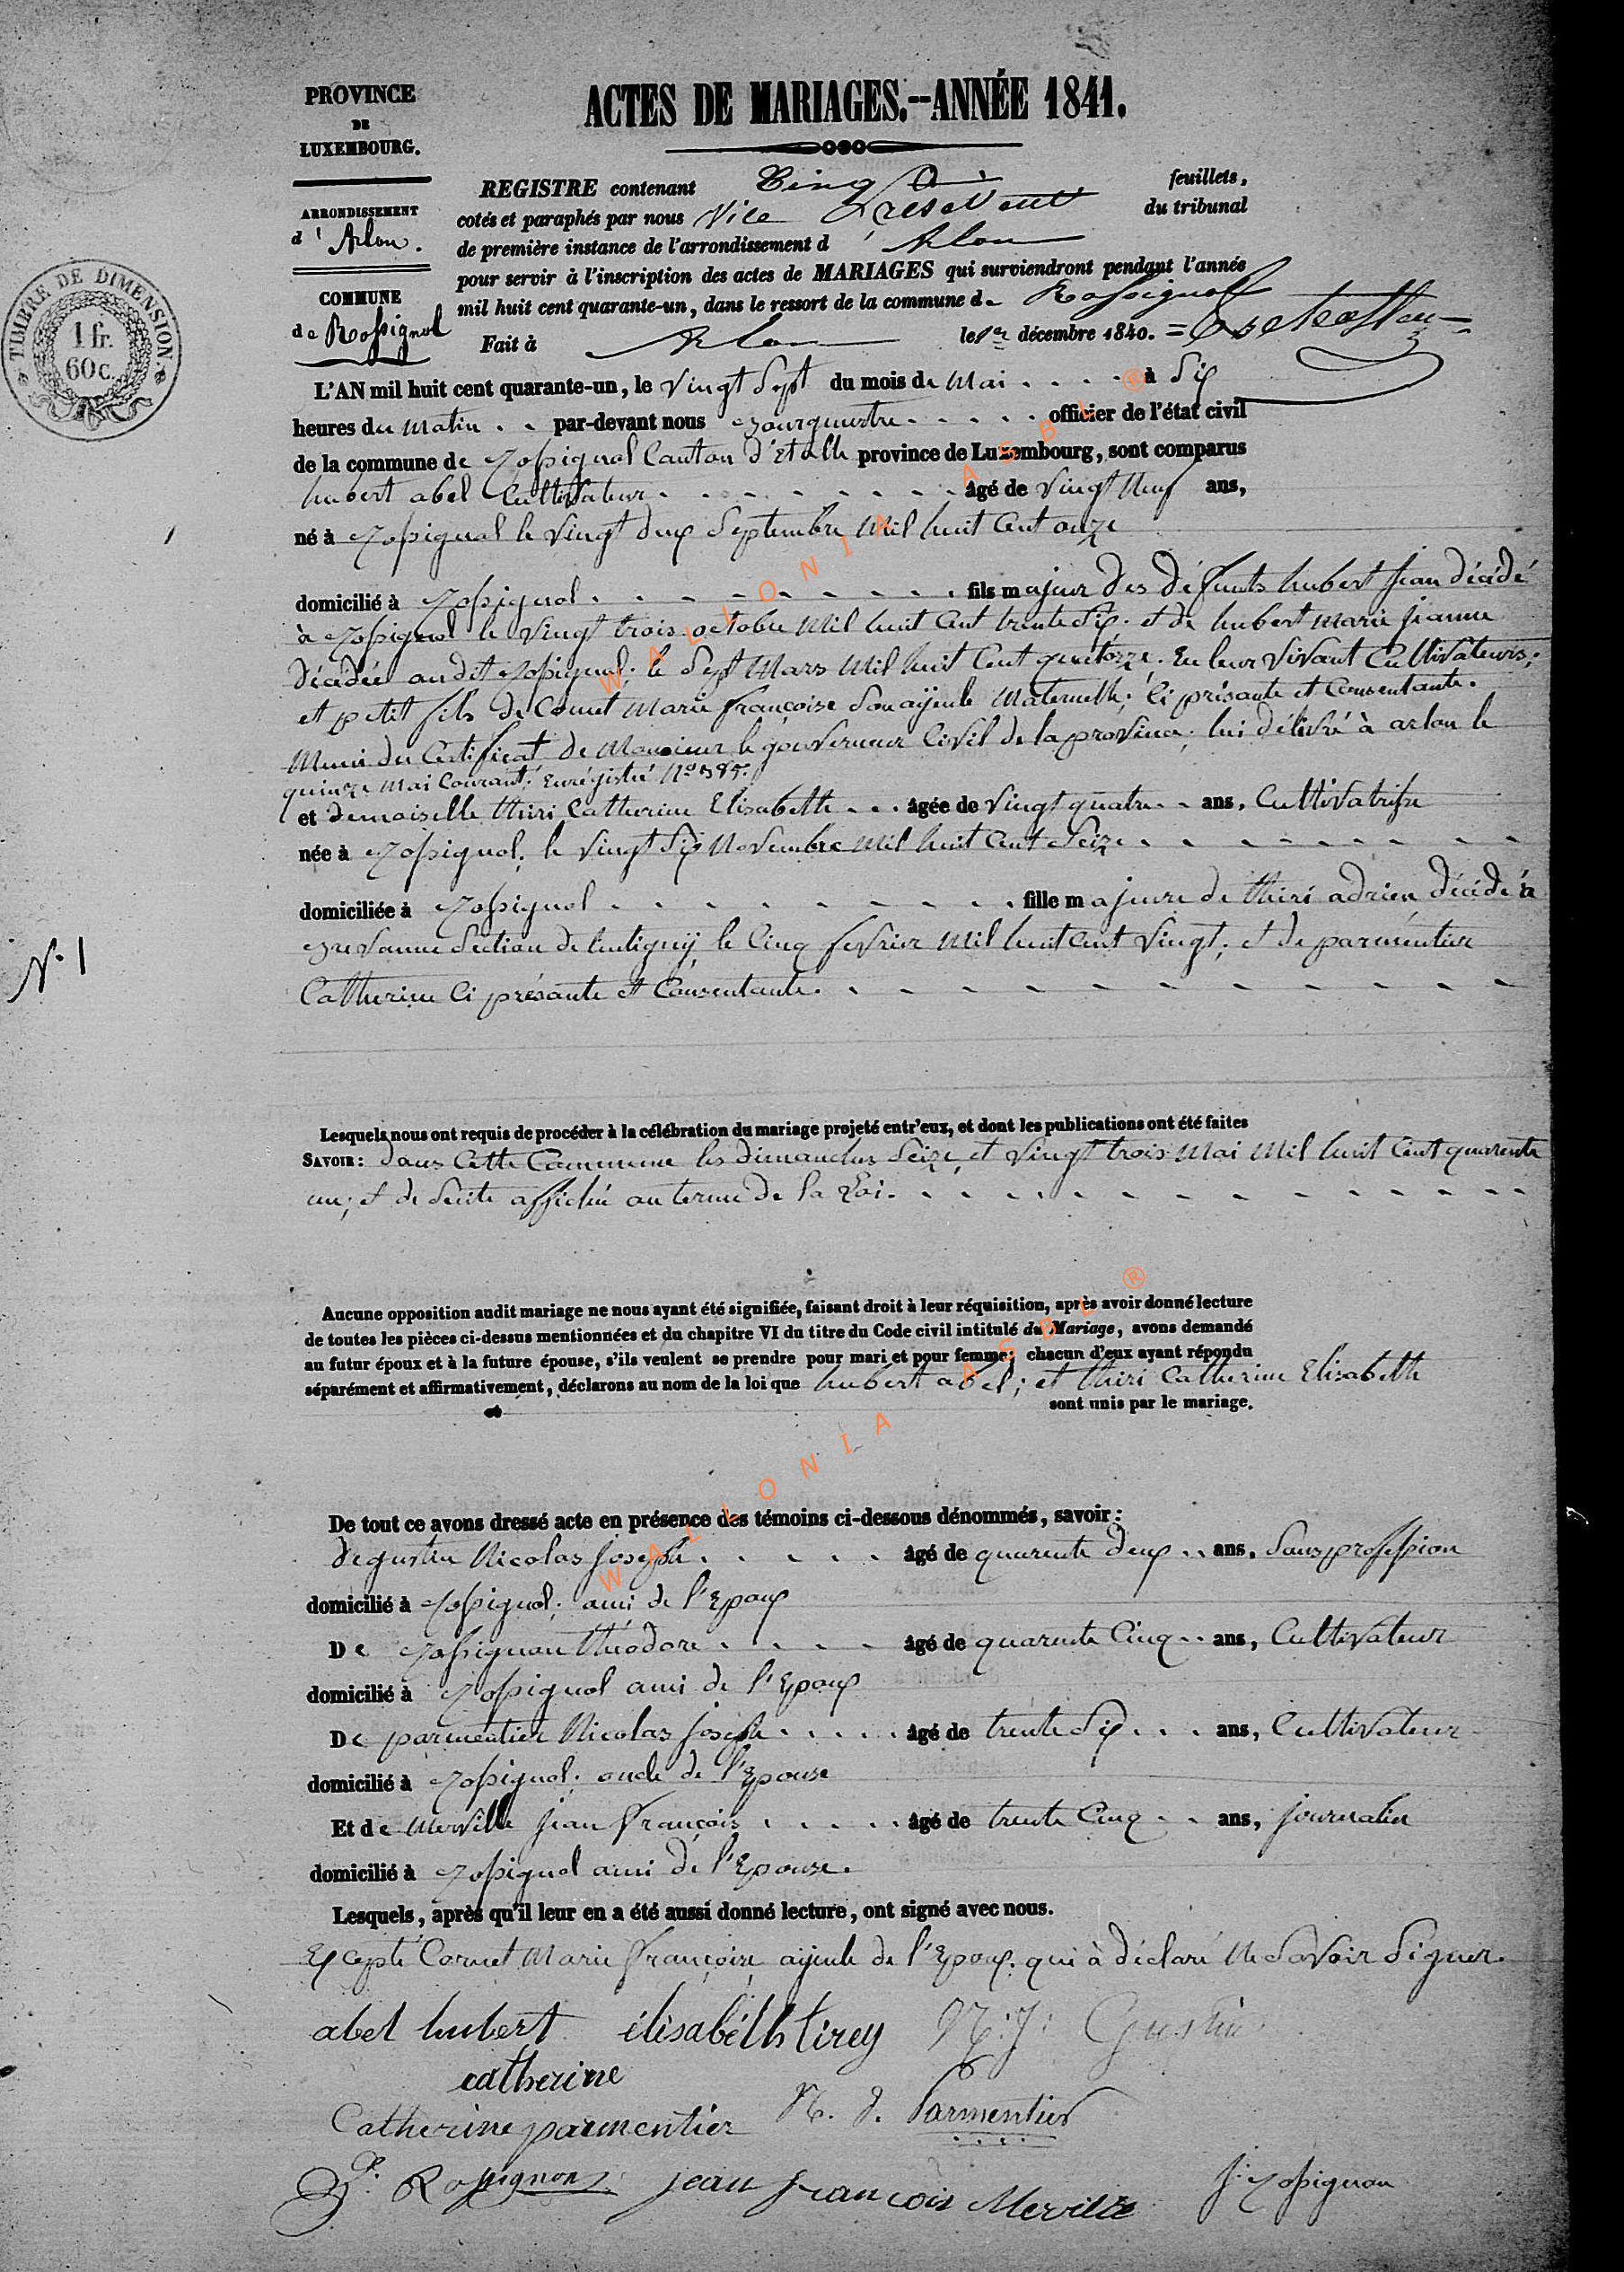 PROVINCE
DE
LUXEMBOURG.
ARRONDISSEMENT
d'Arlon.
COMMUNE
de Rossignol
TIMBRE DE DIMENSION
1 fr.
60 c.
ACTES DE MARIAGES.--ANNÉE 1841.
REGISTRE contenant Cinq feuillets,
cotés et paraphés par nous Vice président du tribunal
de première instance de l'arrondissement d'Arlon
pour servir à l'inscription des actes de MARIAGES qui surviendront pendant l'année
mil huit cent quarante-un, dans le ressort de la commune de Rossignol
Fait à Arlon le 1er décembre 1840.
L'AN mil huit cent quarante-un, le vingt sept du mois de Mai à dix
heures du matin par-devant nous Bourgmestre officier de l'état civil
de la commune de rossignol Canton d'Etalle province de Luxembourg, sont comparus
hubert abel Cultivateur âgé de vingt Neuf ans,
né à rossignol le vingt deux Septembre Mil huit Cent onze
domicilié à rossignol fils majeur des défunts hubert Jean décédé
à rossignol le vingt trois octobre Mil huit Cent trente Six. et de hubert Marie jeanne
décédée audit rossignol; le Sept Mars Mil huit Cent quatorze. En leur vivant Cultivateurs;
et petit fils de Cornet Marie françoise Son ayeule Maternelle; Ci présante et Consentante.
Muni du Certificat de Monsieur le gouverneur Civil de la province; lui délivré à arlon le
quinze Mai Courant; Enrégistré No 385.
et demoiselle thiri Catherine Elisabeth âgée de vingt quatre ans, Cultivatrise
née à rossignol, le vingt Six Novembre Mil huit Cent Seize
domiciliée à rossignol fille majeure de thiri adrien décédé à
Brevanne Section de tintigny, le Cinq fevrier Mil huit Cent vingt; et de parmentier
Catherine Ci présante et Consentante.
N. 1
Lesquels nous ont requis de procéder à la célébration du mariage projeté entr'eux, et dont les publications ont été faites
SAVOIR: dans Cette Commune les dimanches Seize et vingt trois Mai Mil huit Cent quarente
un; et de Suite affichée au terme de la Loi.
Aucune opposition audit mariage ne nous ayant été signifiée, faisant droit à leur réquisition, après avoir donné lecture
de toutes les pièces ci-dessus mentionnées et du chapitre VI du titre du Code civil intitulé du Mariage, avons demandé
au futur époux et à la future épouse, s'ils veulent se prendre pour mari et pour femme; chacun d'eux ayant répondu
séparément et affirmativement, déclarons au nom de la loi que hubert abel; et thiri Catherine Elisabeth
sont unis par le mariage.
De tout ce avons dressé acte en présence des témoins ci-dessous dénommés, savoir:
de gustin Nicolas Joseph âgé de quarente deux ans, Sans profession
domicilié à rossignol; ami de l'Epoux
De rossignon théodore âgé de quarente Cinq ans, Cultivateur
domicilié à rossignol ami de l'Epoux
De parmentier Nicolas Joseph âgé de trente Six ans, Cultivateur
domicilié à rossignol; oncle de l'Epouse
Et de Merville Jean françois âgé de trente Cinq ans, journalier
domicilié à rossignol ami de l'Epouse.
Lesquels, après qu'il leur en a été aussi donné lecture, ont signé avec nous.
Excepté Cornet Marie françoise ayeule de l'Epoux. qui à déclaré Ne Savoir Signer.
abel hubert élisabéth tirey N: J: Gustin
catherine
Catherine parmentier N. J. Parmentier
Rossignon jean francois Merville J: rossignon
WALLONIA ASBL ®
WALLONIA ASBL ®